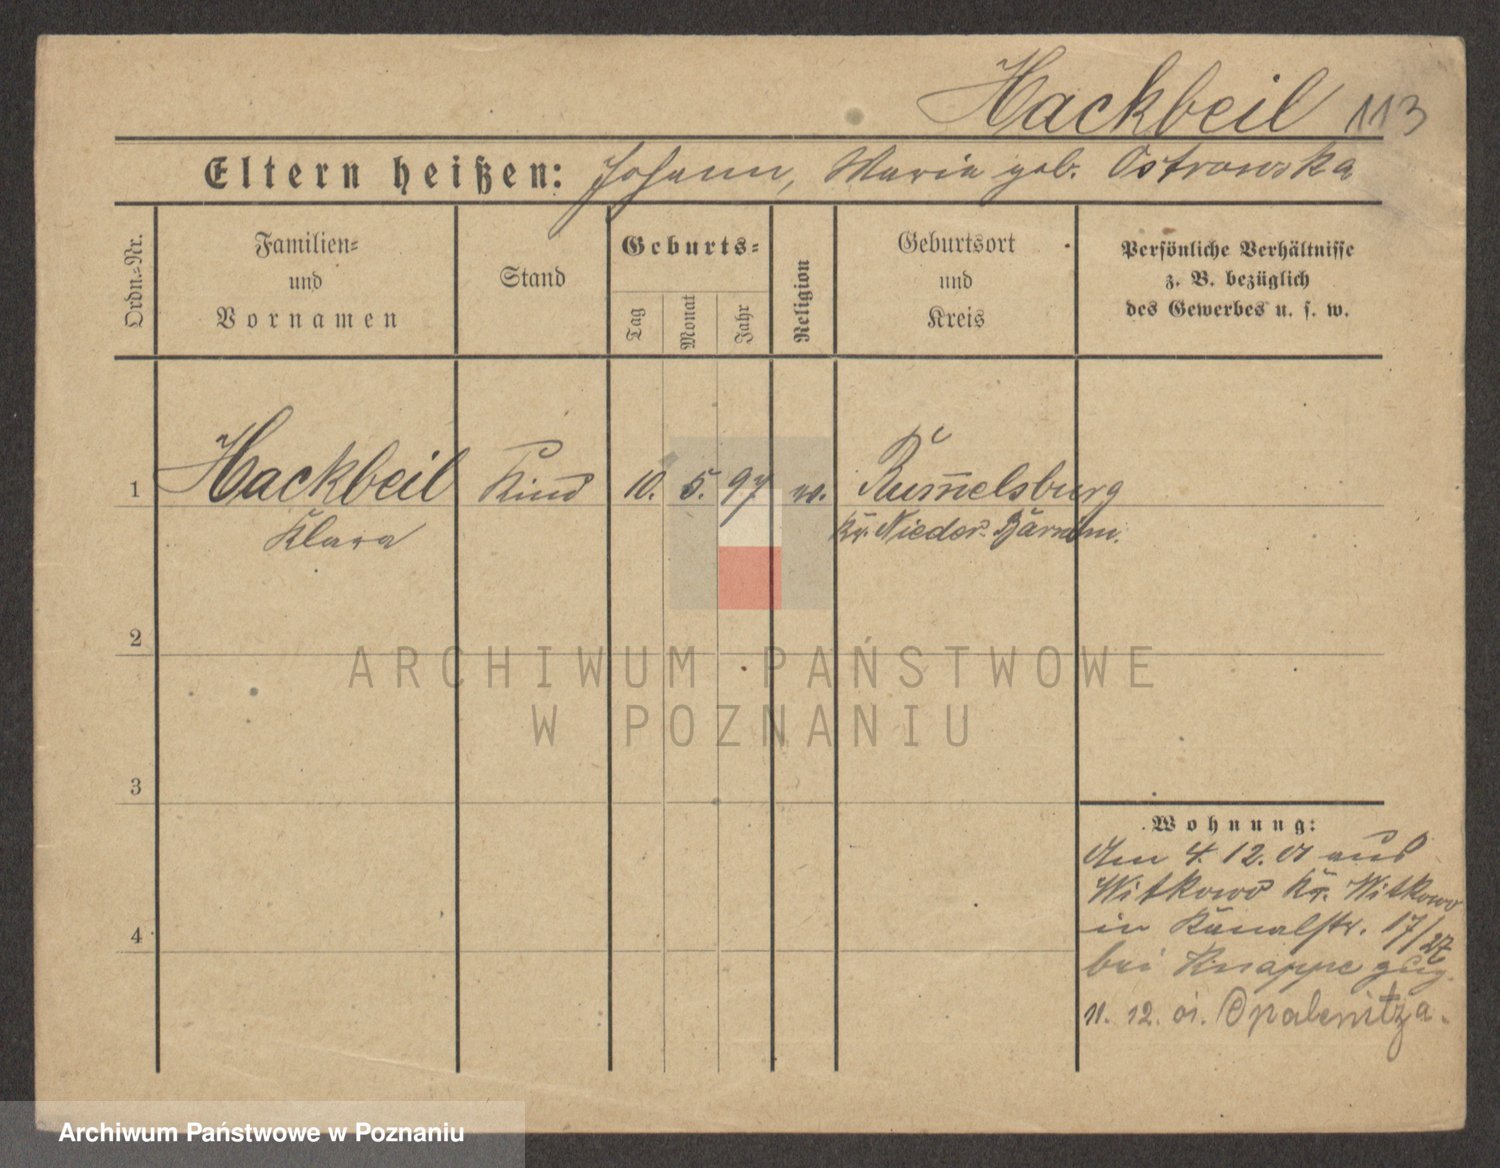 Hackbeil 113
Eltern heißen: Johann, Maria geb. Ostrowska
Ordn.=Nr.
Familien=
und
Vornamen
Stand
Geburts=
Tag
Monat
Jahr
Religion
Geburtsort
und
Kreis
Persönliche Verhältnisse
z. B. bezüglich
des Gewerbes u. s. w.
1 Hackbeil Kind 10. 5. 97 Rum̅elsburg
Klara Kr. Nieder-Barnim.
2
ARCHIWUM PAŃSTWOWE
W POZNANIU
3
Wohnung:
Am 4. 12. 01 aus
Witkowo Kr. Witkowo
in Kanalstr. 17/27
bei Knappe zug.
11. 12. 01. Opalenitza.
4
Archiwum Państwowe w Poznaniu